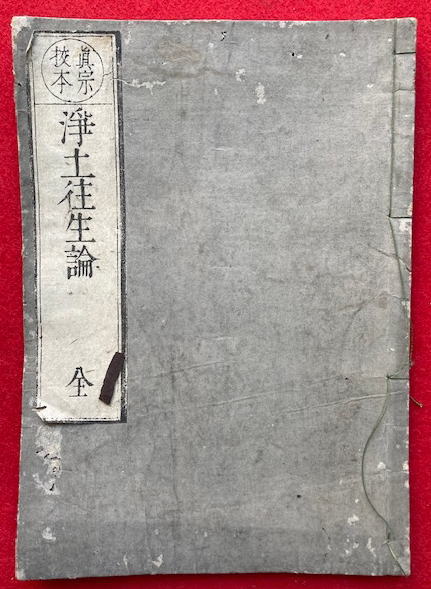 眞宗
挍本
淨土往生論
全